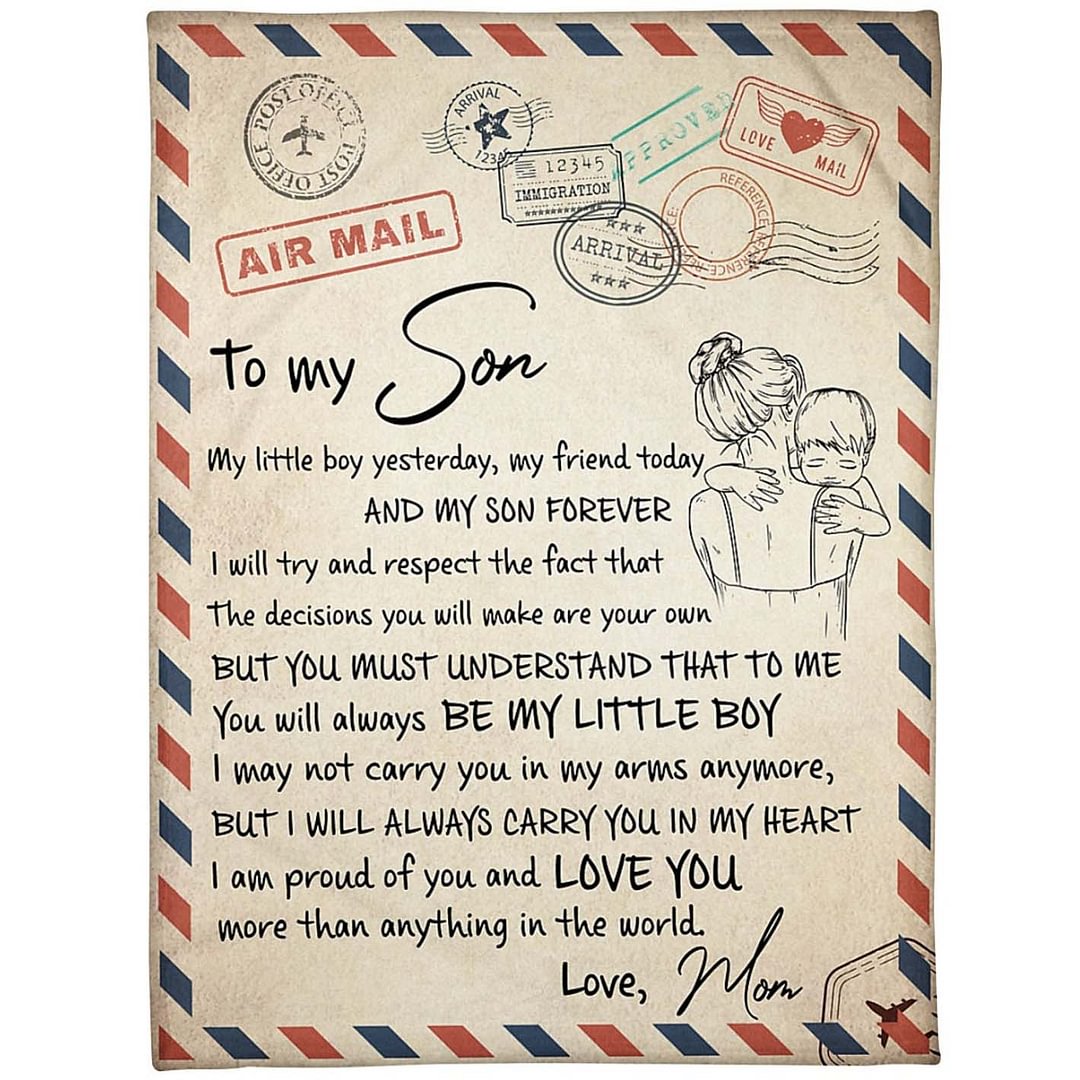 POST OFFICE POST OFFICE
ARRIVAL
1234
12345
IMMIGRATION
APPROVED
LOVE MAIL
REFERENCE
ARRIVAL
AIR MAIL
To my Son
My little boy yesterday, my friend today
AND MY SON FOREVER
I will try and respect the fact that
The decisions you will make are your own
BUT YOU MUST UNDERSTAND THAT TO ME
You will always BE MY LITTLE BOY
I may not carry you in my arms anymore,
BUT I WILL ALWAYS CARRY YOU IN MY HEART
I am proud of you and LOVE YOU
more than anything in the world.
Love, Mom